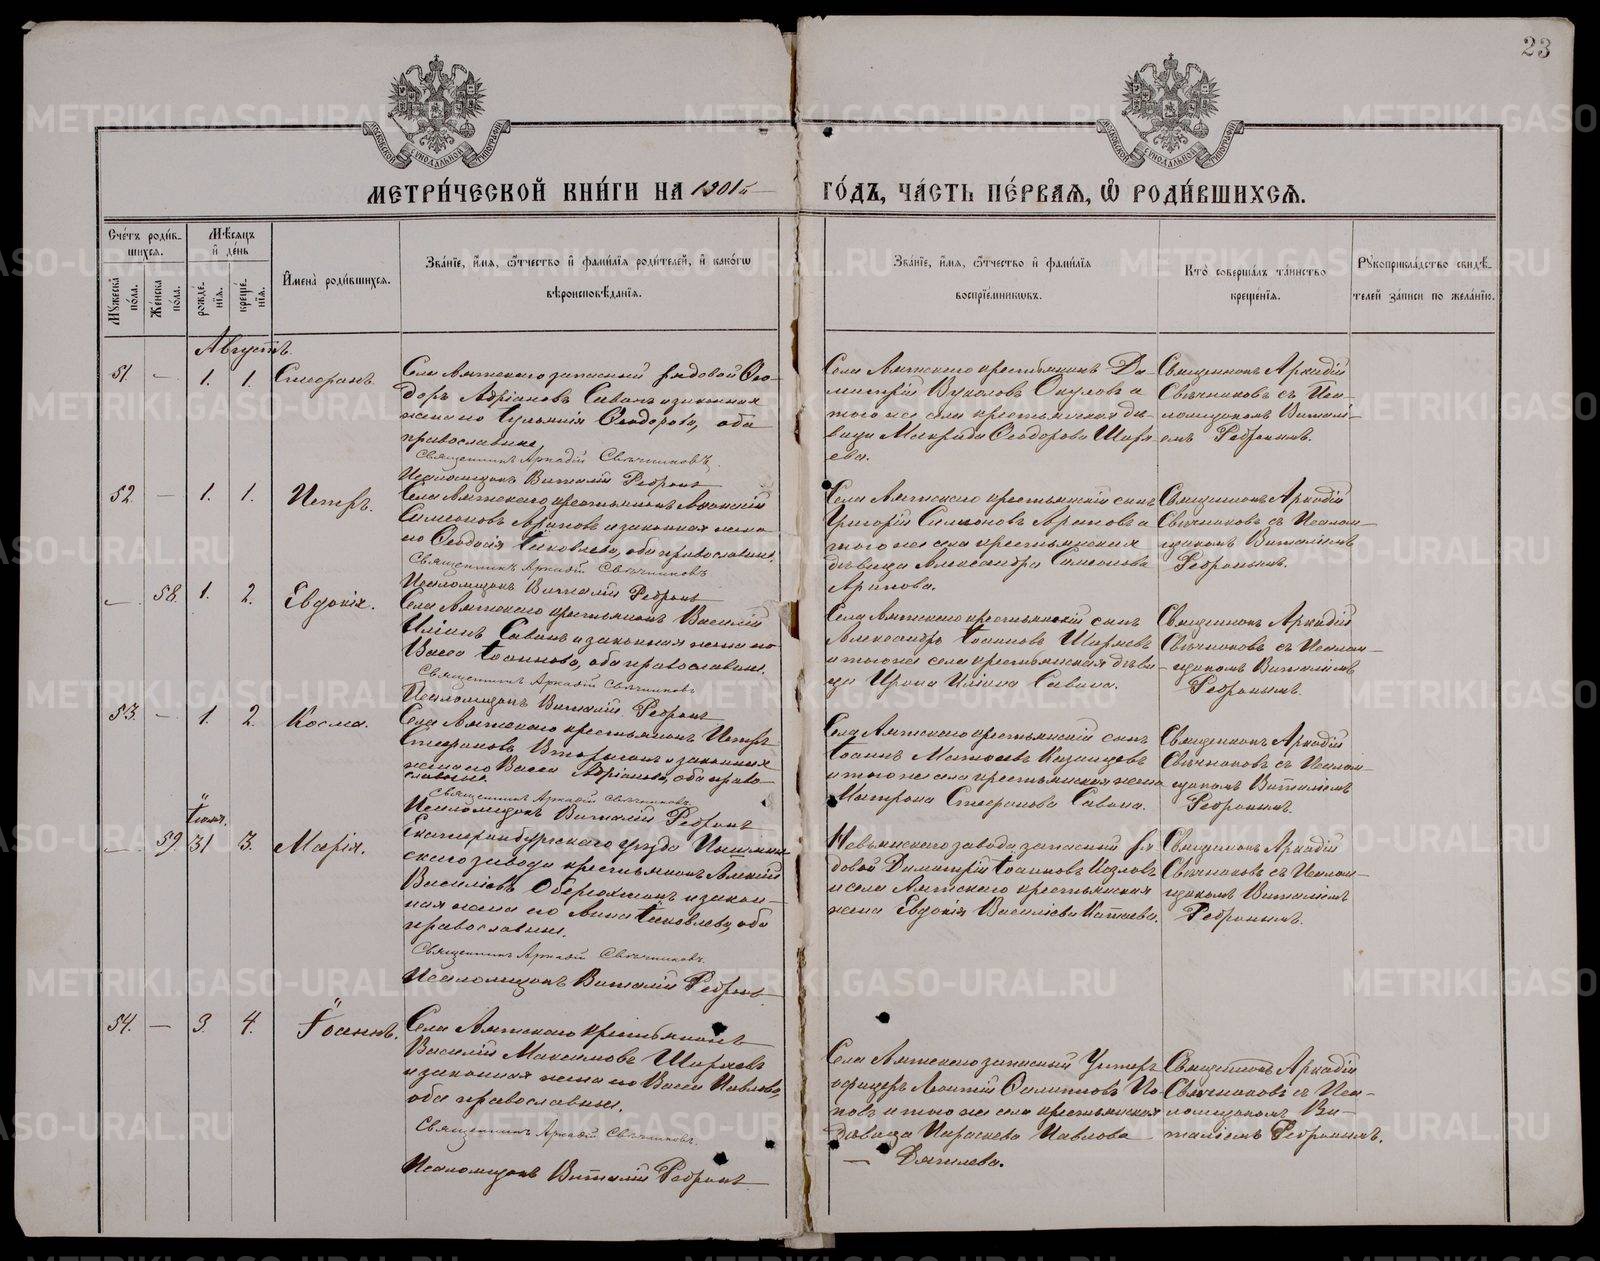 23
МЕТРИ́ЧЕСКОЙ КНИ́ГИ НА 1901й ГО́ДЪ, ЧА́СТЬ ПЕ́РВАѦ, Ѡ҆ РОДИ́ВШИХСѦ.
Сче́тъ роди́в-
шихся.
Мѣ́сяцъ
и҆ де́нь
Мꙋ́жеска
по́ла.
Же́нска
по́ла.
рожде́-
нїя.
креще́-
нїя.
И҆мена̀ роди́вшихся.
Зва́нїе, и҆́мя, ѻ҆́тчество и҆ фами́лїя роди́телей, и҆ како́гѡ
вѣроисповѣ́данїя.
Зва́нїе, и҆́мя, ѻ҆́тчество и҆ фами́лїя
воспрїе́мниковъ.
Кто̀ соверша́лъ та́инство
креще́нїя.
Рꙋкоприкла́дство свидѣ́-
телей за́писи по жела́нїю.
Августъ.
51. — 1. 1. Стефанъ.
Села Аятскаго запасный рядовой Ѳео-
доръ Адріановъ Савинъ и законная
жена его Іуліанія Ѳеодорова, оба
православные.
Священникъ Аркадій Свѣчниковъ.
Псаломщикъ Виталій Ребринъ
Села Аятскаго крестьянинъ Ди-
митрій Вуколовъ Окуловъ и
того же села крестьянская дѣ-
вица Макрида Ѳеодорова Шаря-
ева.
Священникъ Аркадій
Свѣчниковъ съ Псал-
ломщикомъ Витали-
емъ Ребринымъ.
52. — 1. 1. Петръ.
Села Аятскаго крестьянинъ Аѳанасій
Симеоновъ Араповъ и законная жена
его Ѳеодосія Іаковлева, оба православные.
Священникъ Аркадій Свѣчниковъ
Псаломщикъ Виталій Ребринъ
Села Аятскаго крестьянскій сынъ
Григорій Симеоновъ Араповъ и
того же села крестьянская
дѣвица Александра Симеонова
Арапова.
Священникъ Аркадій
Свѣчниковъ съ Псалом-
щикомъ Виталіемъ
Ребринымъ.
— 58. 1. 2. Евдокія.
Села Аятскаго крестьянинъ Василій
Иліинъ Савинъ и законная жена его
Васса Іоаннова, оба православные.
Священникъ Аркадій Свѣчниковъ
Псаломщикъ Виталій Ребринъ
Села Аятскаго крестьянскій сынъ
Александръ Іоанновъ Шаряевъ
и того же села крестьянская дѣви-
ца Ирина Иліина Савина.
Священникъ Аркадій
Свѣчниковъ съ Псалом-
щикомъ Виталіемъ
Ребринымъ.
53. — 1. 2. Косма.
Села Аятскаго крестьянинъ Петръ
Стефановъ и законная
жена его Васса Адріанова, оба право-
славные.
Священникъ Аркадій Свѣчниковъ
Псаломщикъ Виталій Ребринъ
Села Аятскаго крестьянскій сынъ
Іоаннъ Матѳіевъ Казанцевъ
и того же села крестьянская жена
Матрона Стефанова Савина.
Священникъ Аркадій
Свѣчниковъ съ Псалом-
щикомъ Виталіемъ
Ребринымъ.
Іюля.
— 59. 31 3. Марія.
Екатеринбургскаго уѣзда
скаго завода крестьянинъ Алексій
Василіевъ и закон-
ная жена его Анна Іаковлева, оба
православные.
Священникъ Аркадій Свѣчниковъ.
Псаломщикъ Виталій Ребринъ
Невьянскаго завода запасный ря-
довой Димитрій Іоанновъ Козловъ
и села Аятскаго крестьянская
жена Евдокія Василіева Катаева.
Священникъ Аркадій
Свѣчниковъ съ Псалом-
щикомъ Виталіемъ
Ребринымъ.
54. — 3. 4. Іоаннъ.
Села Аятскаго крестьянинъ
Василій Максимовъ Шаряевъ
и законная жена его Васса Павлова,
оба православные.
Священникъ Аркадій Свѣчниковъ.
Псаломщикъ Виталій Ребринъ
Села Аятскаго запасный Унтеръ
офицеръ Филипповъ По-
повъ и того же села крестьянская
дѣвица Параскева Павлова
— Дягилева.
Священникъ Аркадій
Свѣчниковъ съ Псал-
ломщикомъ Ви-
таліемъ Ребринымъ.
METRIKI.GASO-URAL.RU